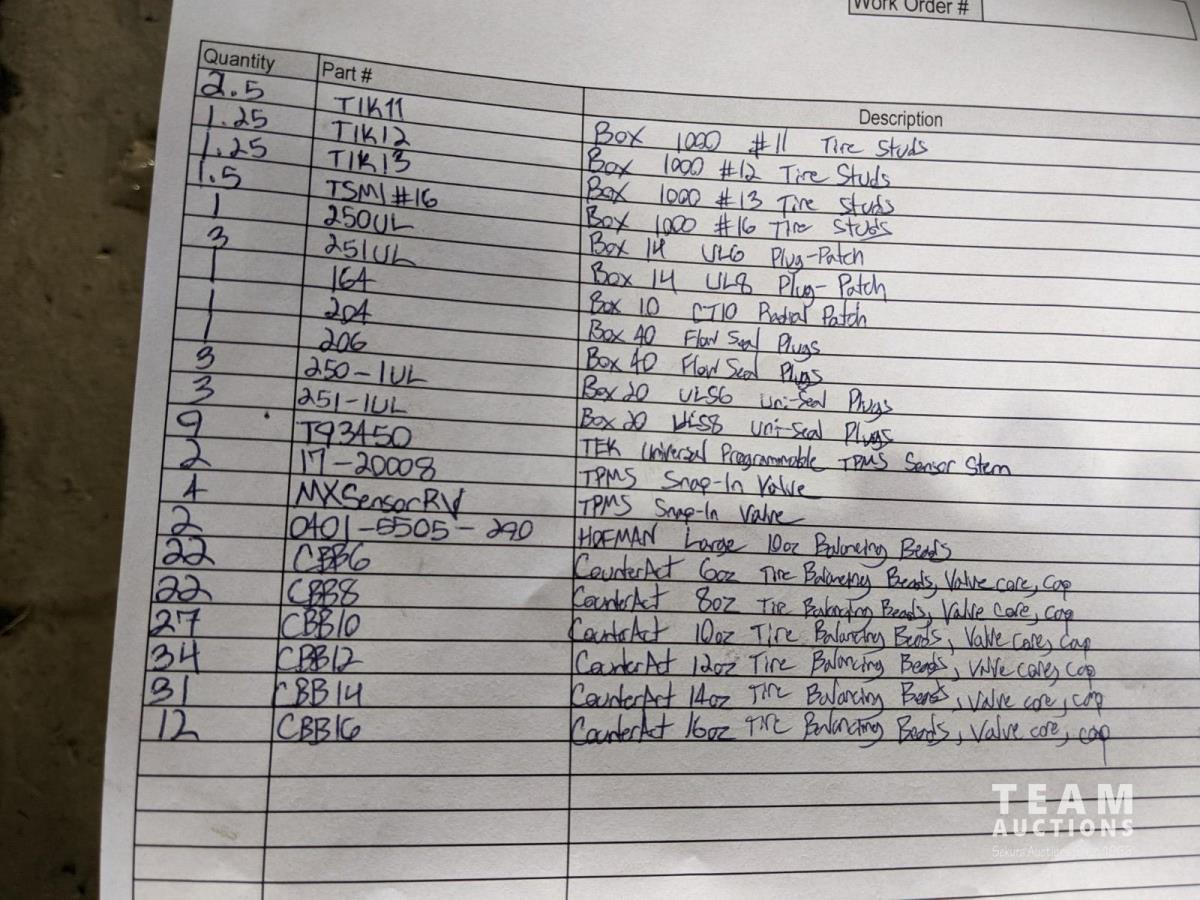 Work Order #
Quantity Part # Description
2.5 T1K11 Box 1000 #11 Tire Studs
1.25 T1K12 Box 1000 #12 Tire Studs
1.25 T1K13 Box 1000 #13 Tire Studs
1.5 TSM1#16 Box 1000 #16 Tire Studs
1 250UL Box 14 UL6 Plug-Patch
3 251UL Box 14 UL8 Plug-Patch
1 164 Box 10 CT10 Radial Patch
1 204 Box 40 Flow Seal Plugs
1 206 Box 40 Flow Seal Plugs
3 250-1UL Box 20 ULS6 Uni-Seal Plugs
3 251-1UL Box 20 ULS8 Uni-Seal Plugs
9 T93450 TEK Universal Programmable TPMS Sensor Stem
2 17-20008 TPMS Snap-In Valve
4 MXSensorRV TPMS Snap-In Valve
2 0401-5505-290 HOFMAN Large 10oz Balancing Beads
22 CBB6 CounterAct 6oz Tire Balancing Beads, Valve core, cap
22 CBB8 CounterAct 8oz Tire Balancing Beads, Valve core, cap
27 CBB10 CounterAct 10oz Tire Balancing Beads, Valve core, cap
34 CBB12 CounterAct 12oz Tire Balancing Beads, Valve core, cap
31 CBB14 CounterAct 14oz Tire Balancing Beads, Valve core, cap
12 CBB16 CounterAct 16oz Tire Balancing Beads, Valve core, cap
TEAM
AUCTIONS